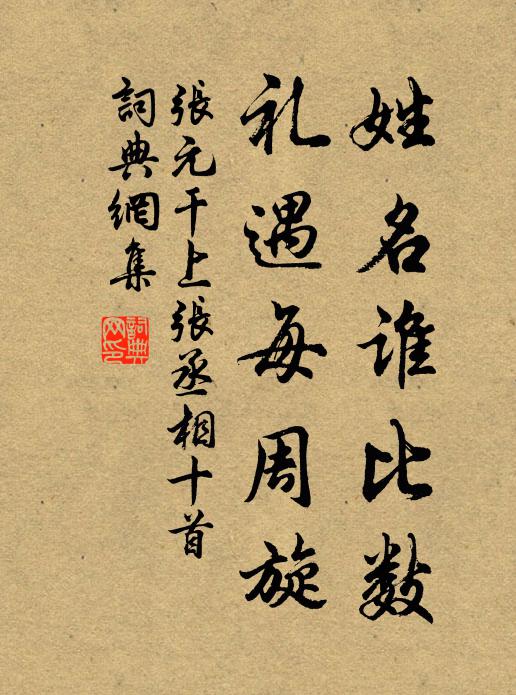 姓名谁比数
礼遇每周旋
張元干上張丞相十首
詞典網集
詞典网印